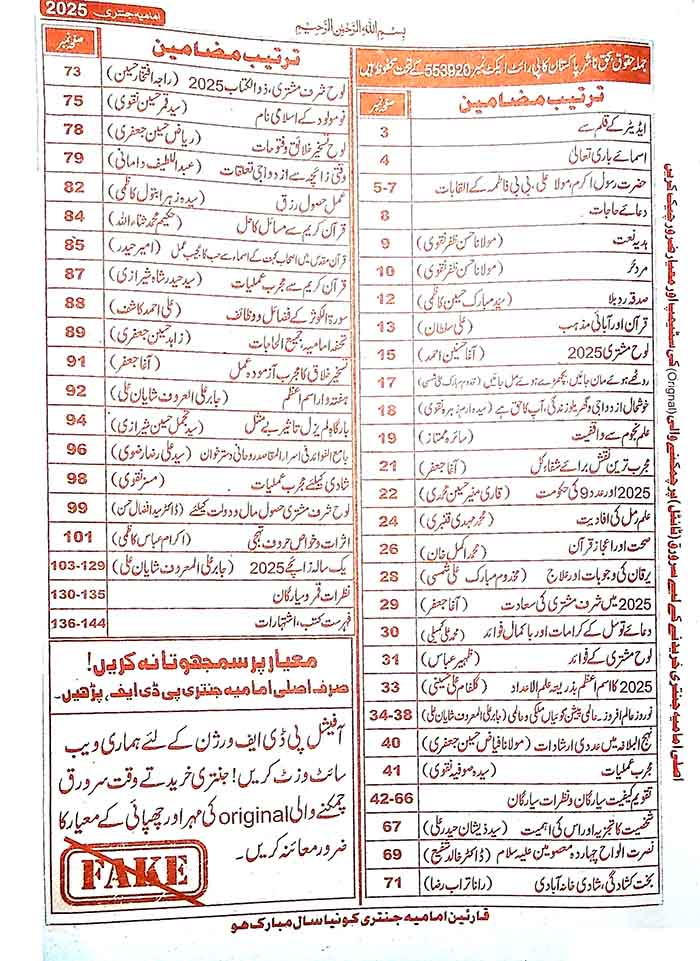 امامیہ جنتری 2025
بسم اللہ الرحمٰن الرحیم
جملہ حقوق بحق ناشر پاکستان کاپی رائٹ ایکٹ نمبر 553920 کے تحت محفوظ ہیں
صفحہ نمبر ترتیب مضامین
3 ایڈیٹر کے قلم سے
4 اسمائے باری تعالیٰ
5-7 حضرت رسول اکرم، مولا علی، بی بی فاطمہ کے القابات
8 دعائے حاجات
9 ہدیہ نعت (مولانا حسن ظفر نقوی)
10 مردِ حُر (مولانا حسن ظفر نقوی)
12 صدقہ رد بلا (سید مبارک حسین کاظمی)
13 قرآن اور آبائی مذہب (علی سلطان)
15 لوح مشتری 2025 (آغا حسنین احمد)
17 روٹھے ہوئے مان جائیں، بچھڑے ہوئے مل جائیں (مخدوم مبارک علی شمسی)
18 خوشحال ازدواجی و گھریلو زندگی، آپ کا حق ہے (سیدہ ارم زہرہ نقوی)
19 علم نجوم سے واقفیت (سائرہ ممتاز)
21 مجرب ترین نقش برائے شفاء کل (آغا جعفر)
22 2025 اور عدد 9 کی حکومت (قاری منیر حسین محمدی)
24 علم رمل کی افادیت (محمد مہدی قنبری)
26 صحت اور اعجاز قرآن (محمد اکمل خان)
28 یرقان کی وجوہات اور علاج (مخدوم مبارک علی شمسی)
29 2025 میں شرف مشتری کی سعادت (آغا جعفر)
30 دعائے توسل کے کرامات اور باکمال فوائد (محمد علی کمیلی)
31 لوح مشتری کے فوائد (ظہیر عباس)
33 2025 کا اسم اعظم بذریعہ علم الاعداد (گلفام علی حسینی)
34-38 نوروز عالم افروز۔ عالمی پیشن گوئیاں ملکی و عالمی (جابر علی المعروف شایان علی)
40 نہج البلاغہ میں عددی ارشادات (مولانا فیاض حسین جعفری)
41 مجرب عملیات (سیدہ صوفیہ نقوی)
42-66 تقویم کیفیت سیارگان و نظرات سیارگان
67 شخصیت کا تجزیہ اور اس کی اہمیت (سید ذیشان حیدر علی)
69 نصرت الواح چہاردہ معصومین علیہ سلام (ڈاکٹر خالد شفیع)
71 بخت کشادگی، شادی خانہ آبادی (رانا تراب رضا)
صفحہ نمبر ترتیب مضامین
73 لوح شرف مشتری، ذوالکتاب 2025 (راجہ افتخار حسین)
75 نومولود کے اسلامی نام (سید قمر حسین نقوی)
78 لوح تسخیر خلائق و فتوحات (ریاض حسین جعفری)
79 وقتی زائچہ سے ازدواجی تعلقات (عبداللطیف دامانی)
82 عمل حصول رزق (سیدہ زہرا بتول کاظمی)
84 قرآن کریم سے مسائل کا حل (حکیم محمد ثناء اللہ)
85 قرآن مقدس میں اصحاب کہف کے اسماء سے حب کا عجیب عمل (امیر حیدر)
87 قرآن کریم سے مجرب عملیات (سید حیدر شاہ شیرازی)
88 سورۃ الکوثر کے فضائل و وظائف (علی احمد کاشف)
89 تحفہ امامیہ، جمیع الحاجات (زاہد حسین جعفری)
91 تسخیر خلاق کا مجرب آزمودہ عمل (آغا جعفر)
92 ہفتہ وار اسم اعظم (جابر علی المعروف شایان علی)
94 بارگاہ لم یزل تاثیر بے مثل (سید تجمل حسین شیرازی)
96 جامع الفوائد فی اسرار المقاصد روحانی دسترخوان (سید علی رضا رضوی)
98 شادی کیلئے مجرب عملیات (مسز نقوی)
99 لوح شرف مشتری حصول مال و دولت کیلئے (ڈاکٹر سید افضال حسن)
101 اثرات و خواص حروف تہجی (اکرام عباس کاظمی)
103-129 یک سالہ زائچے 2025 (جابر علی المعروف شایان علی)
130-135 نظرات قمر و سیارگان
136-144 فہرست کتب، اشتہارات
معیار پر سمجھوتا نہ کریں!
صرف اصلی امامیہ جنتری پی ڈی ایف، پڑھیں۔
آفیشل پی ڈی ایف ورژن کے لئے ہماری ویب
سائٹ وزٹ کریں! جنتری خریدتے وقت سرورق
چمکنے والی original کی مہر اور چھپائی کے معیار کا
ضرور معائنہ کریں۔
FAKE
قارئین امامیہ جنتری کو نیا سال مبارک ھو
اصلی امامیہ جنتری خریدنے کے لیے سرورق (ٹائٹل) پر چمکنے والی (Orignal) کی سٹیمپ اور معیار ضرور چیک کریں